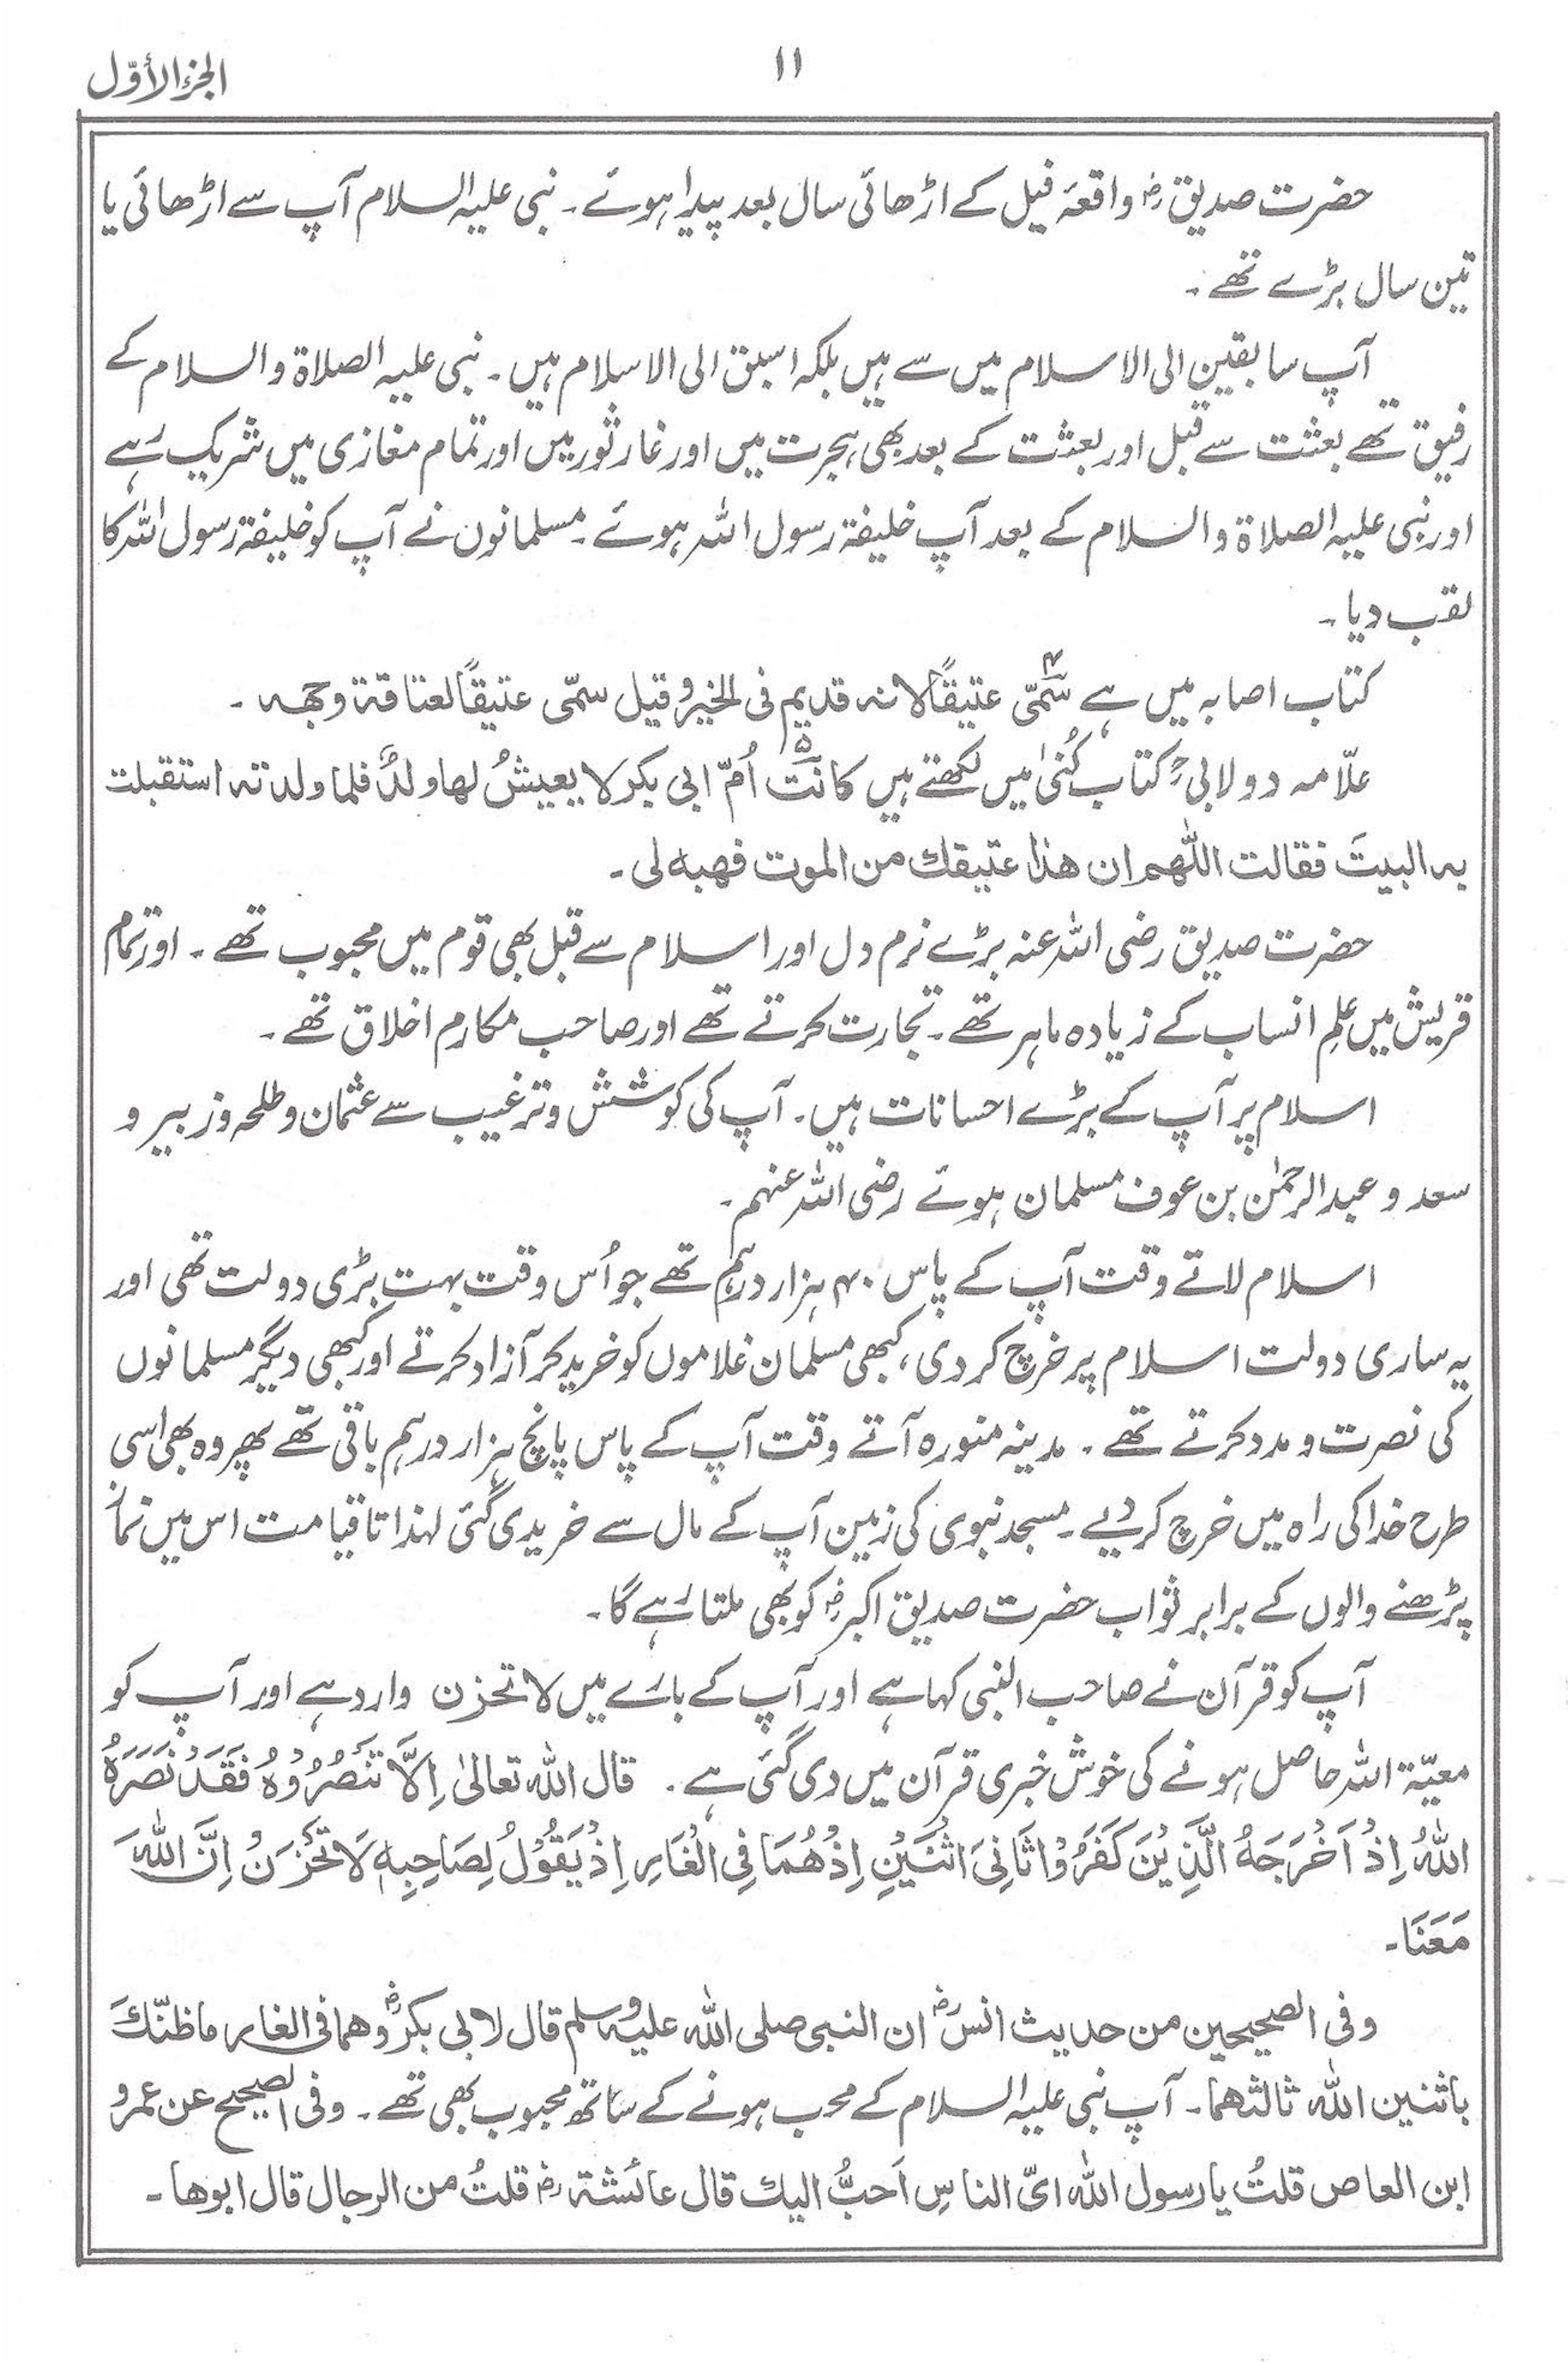 الجزء الأوّل
١١
حضرت صدیق رضؓ واقعۂ فیل کے اڑھائی سال بعد پیدا ہوئے۔ نبی علیہ السلام آپ سے اڑھائی یا
تین سال بڑے تھے۔
آپ سابقین الی الاسلام میں سے ہیں بلکہ اسبق الی الاسلام ہیں۔ نبی علیہ الصلاۃ والسلام کے
رفیق تھے بعثت سے قبل اور بعثت کے بعد بھی ہجرت میں اور غار ثور میں اور تمام مغازی میں شریک رہے
اور نبی علیہ الصلاۃ والسلام کے بعد آپ خلیفۃ رسول اللہ ہوئے۔ مسلمانوں نے آپ کو خلیفۃ رسول اللہ کا
لقب دیا۔
کتاب اصابہ میں ہے سُمّی عتیقًا لانہ قدیم فی الخیر وقیل سمّی عتیقًا لعتاقۃ وجھہ۔
علّامہ دولابیؒ کتاب کُنیٰ میں لکھتے ہیں کانَتْ اُمّ ابی بکر لا یعیشُ لھا ولدٌ فلما ولدتہ استقبلت
بہ البیتَ فقالت اللّٰھم ان ھذا عتیقك من الموت فھبہ لی۔
حضرت صدیق رضی اللہ عنہ بڑے نرم دل اور اسلام سے قبل بھی قوم میں محبوب تھے۔ اور تمام
قریش میں علمِ انساب کے زیادہ ماہر تھے۔ تجارت کرتے تھے اور صاحب مکارم اخلاق تھے۔
اسلام پر آپ کے بڑے احسانات ہیں۔ آپ کی کوشش و ترغیب سے عثمان و طلحہ و زبیر و
سعد و عبدالرحمٰن بن عوف مسلمان ہوئے رضی اللہ عنہم۔
اسلام لاتے وقت آپ کے پاس ۴۰ ہزار درہم تھے جو اُس وقت بہت بڑی دولت تھی اور
یہ ساری دولت اسلام پر خرچ کر دی، کبھی مسلمان غلاموں کو خرید کر آزاد کرتے اور کبھی دیگر مسلمانوں
کی نصرت و مدد کرتے تھے۔ مدینہ منورہ آتے وقت آپ کے پاس پانچ ہزار درہم باقی تھے پھر وہ بھی اسی
طرح خدا کی راہ میں خرچ کر دیے۔ مسجد نبوی کی زمین آپ کے مال سے خریدی گئی لہٰذا تا قیامت اس میں نماز
پڑھنے والوں کے برابر ثواب حضرت صدیق اکبر رضؓ کو بھی ملتا رہے گا۔
آپ کو قرآن نے صاحب النبی کہا ہے اور آپ کے بارے میں لا تحزن وارد ہے اور آپ کو
معیّۃ اللہ حاصل ہونے کی خوش خبری قرآن میں دی گئی ہے۔ قال اللہ تعالیٰ اِلَّا تَنْصُرُوْہُ فَقَدْ نَصَرَہُ
اللہُ اِذْ اَخْرَجَہُ الَّذِیْنَ کَفَرُوْا ثَانِیَ اثْنَیْنِ اِذْ ھُمَا فِی الْغَارِ اِذْ یَقُوْلُ لِصَاحِبِہٖ لَا تَحْزَنْ اِنَّ اللہَ
مَعَنَا۔
وفی الصحیحین من حدیث انس رضؓ ان النبی صلی اللہ علیہ وسلم قال لابی بکر رضؓ وھما فی الغار ما ظنّكَ
باثنین اللہ ثالثھما۔ آپ نبی علیہ السلام کے محب ہونے کے ساتھ محبوب بھی تھے۔ وفی الصحیح عن عمرو
ابن العاص قلتُ یا رسول اللہ ایّ الناسِ اَحبُّ الیك قال عائشۃ رضؓ قلتُ من الرجال قال ابوھا۔